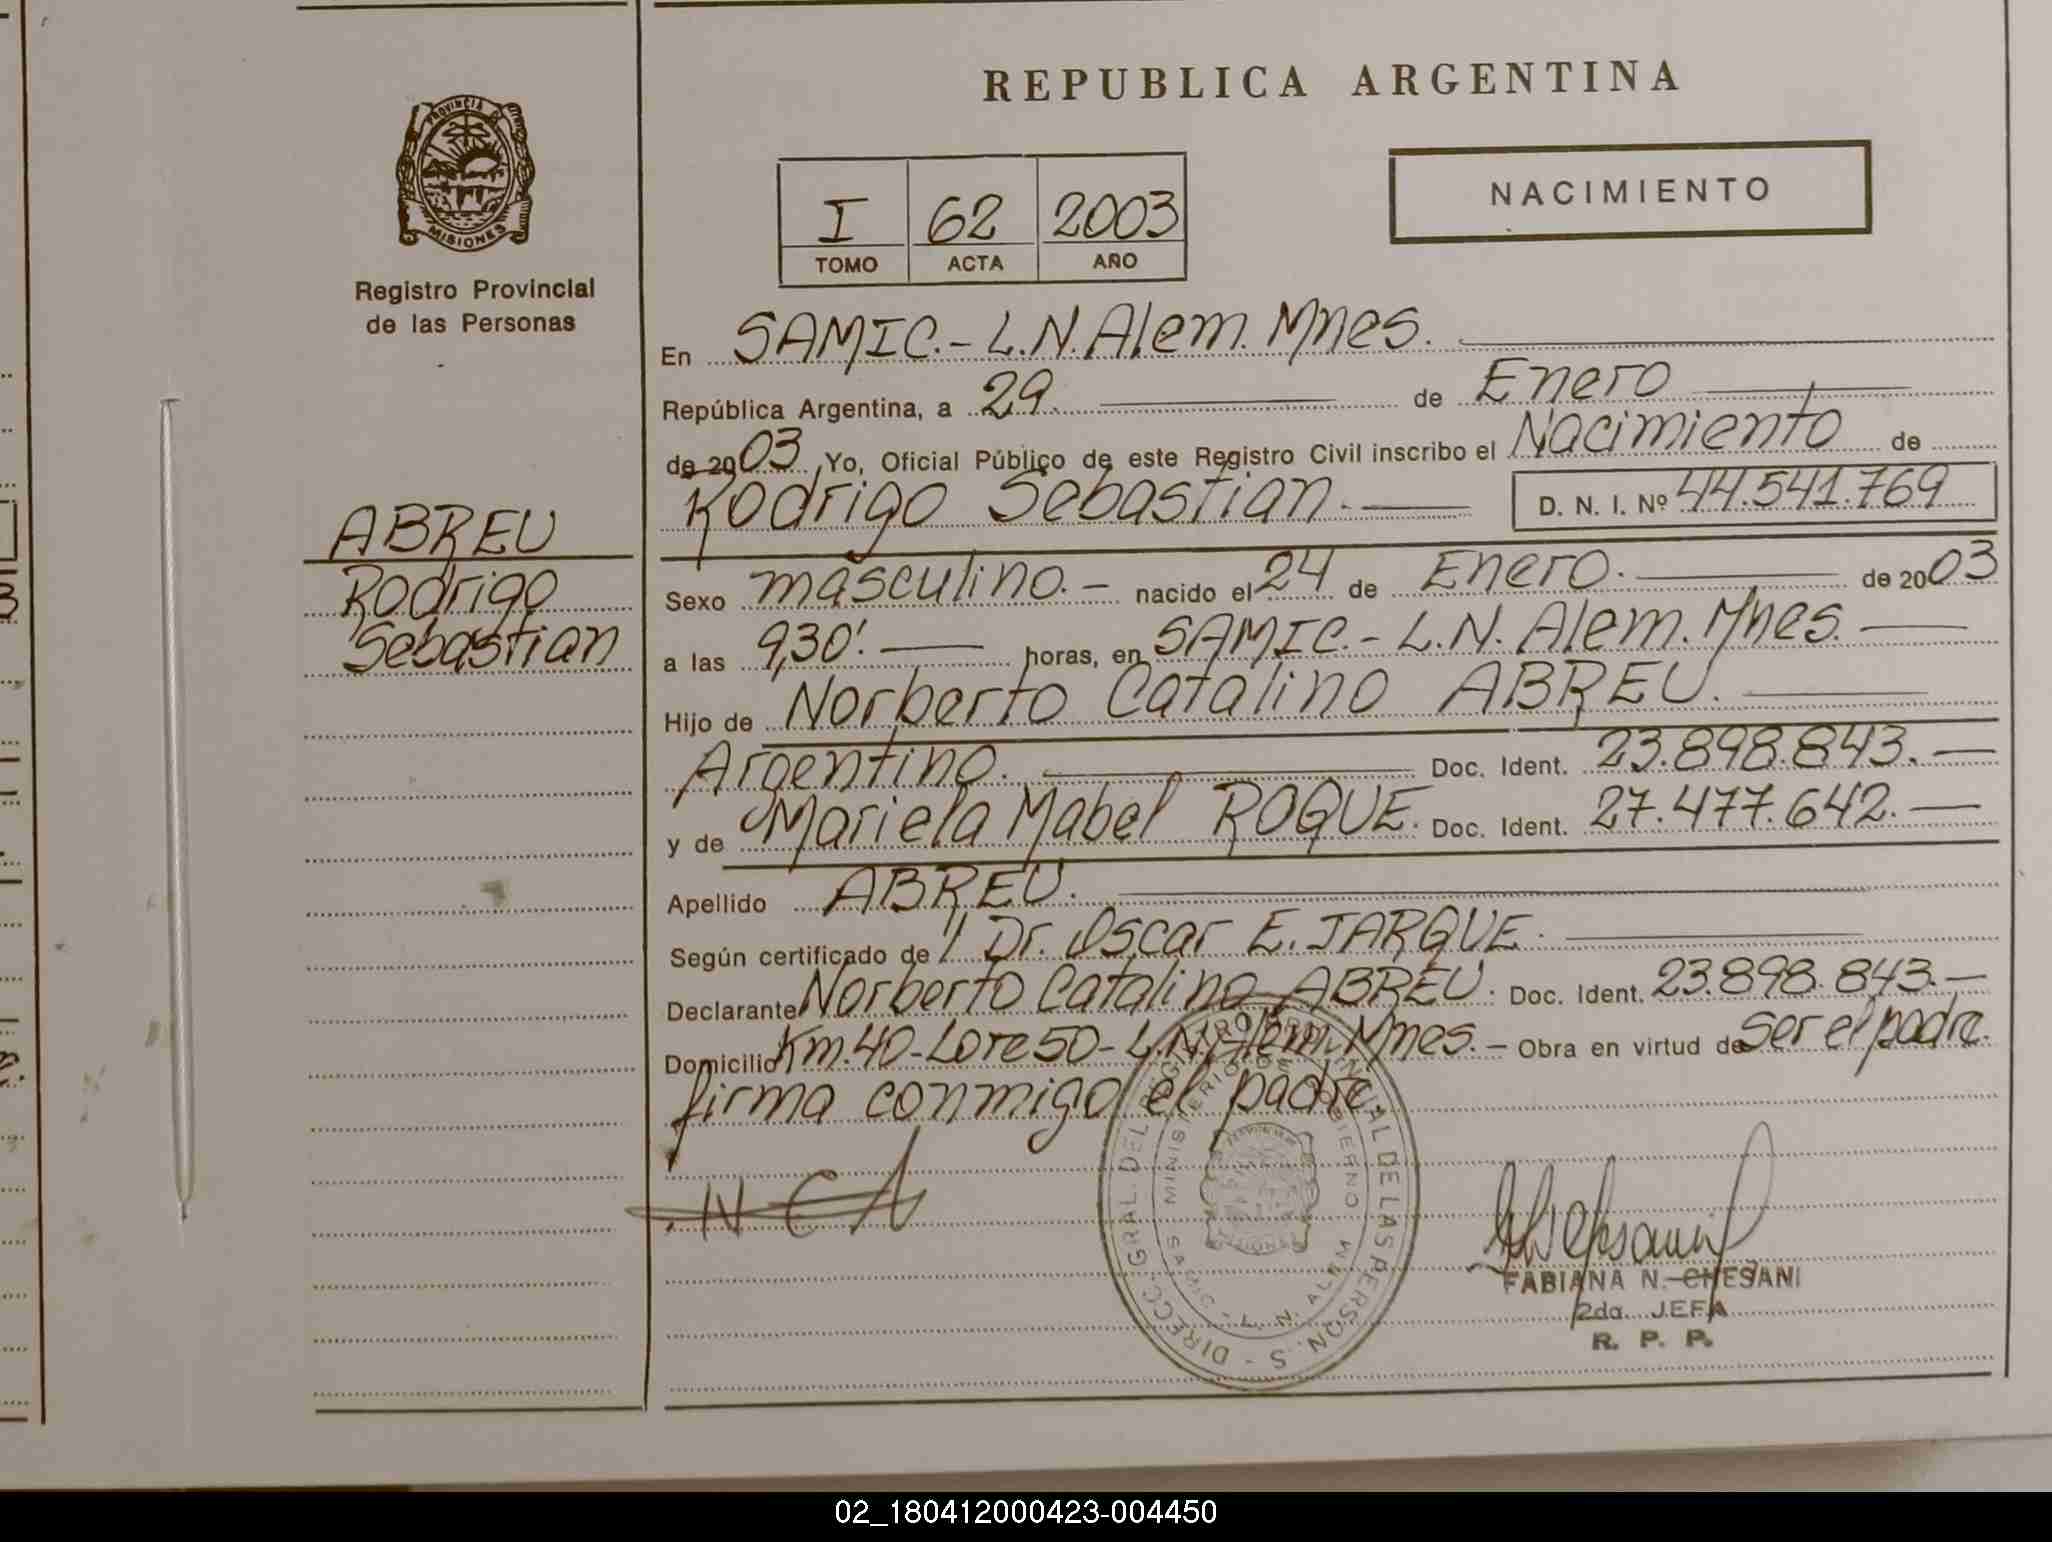 REPUBLICA ARGENTINA
PROVINCIA DE
MISIONES
Registro Provincial
de las Personas
I 62 2003
TOMO ACTA AÑO
NACIMIENTO
En SAMIC.- L.N.Alem. Mnes.
República Argentina, a 29 de Enero
de 2003 Yo, Oficial Público de este Registro Civil inscribo el Nacimiento de
Rodrigo Sebastian. D. N. I. Nº 44.541.769
ABREU
Rodrigo
Sebastian
Sexo masculino.- nacido el 24 de Enero. de 2003
a las 9,30'. horas, en SAMIC.- L.N. Alem. Mnes.
Hijo de Norberto Catalino ABREU.
Argentino. Doc. Ident. 23.898.843.-
y de Mariela Mabel ROQUE. Doc. Ident. 27.477.642.-
Apellido ABREU.
Según certificado de // Dr. Oscar E. JARQUE.
Declarante Norberto Catalino ABREU. Doc. Ident. 23.898.843.-
Domicilio Km.40-Lote 50- L.N. Alem. Mnes.- Obra en virtud de Ser el padre.
firma conmigo el padre.
N C A
DIRECC. GRAL. DEL REGISTRO PROVINCIAL DE LAS PERSONAS
MINISTERIO DE GOBIERNO
SAMIC - L. N. ALEM
FABIANA N. CHESANI
2da. JEFA
R. P. P.
02_180412000423-004450